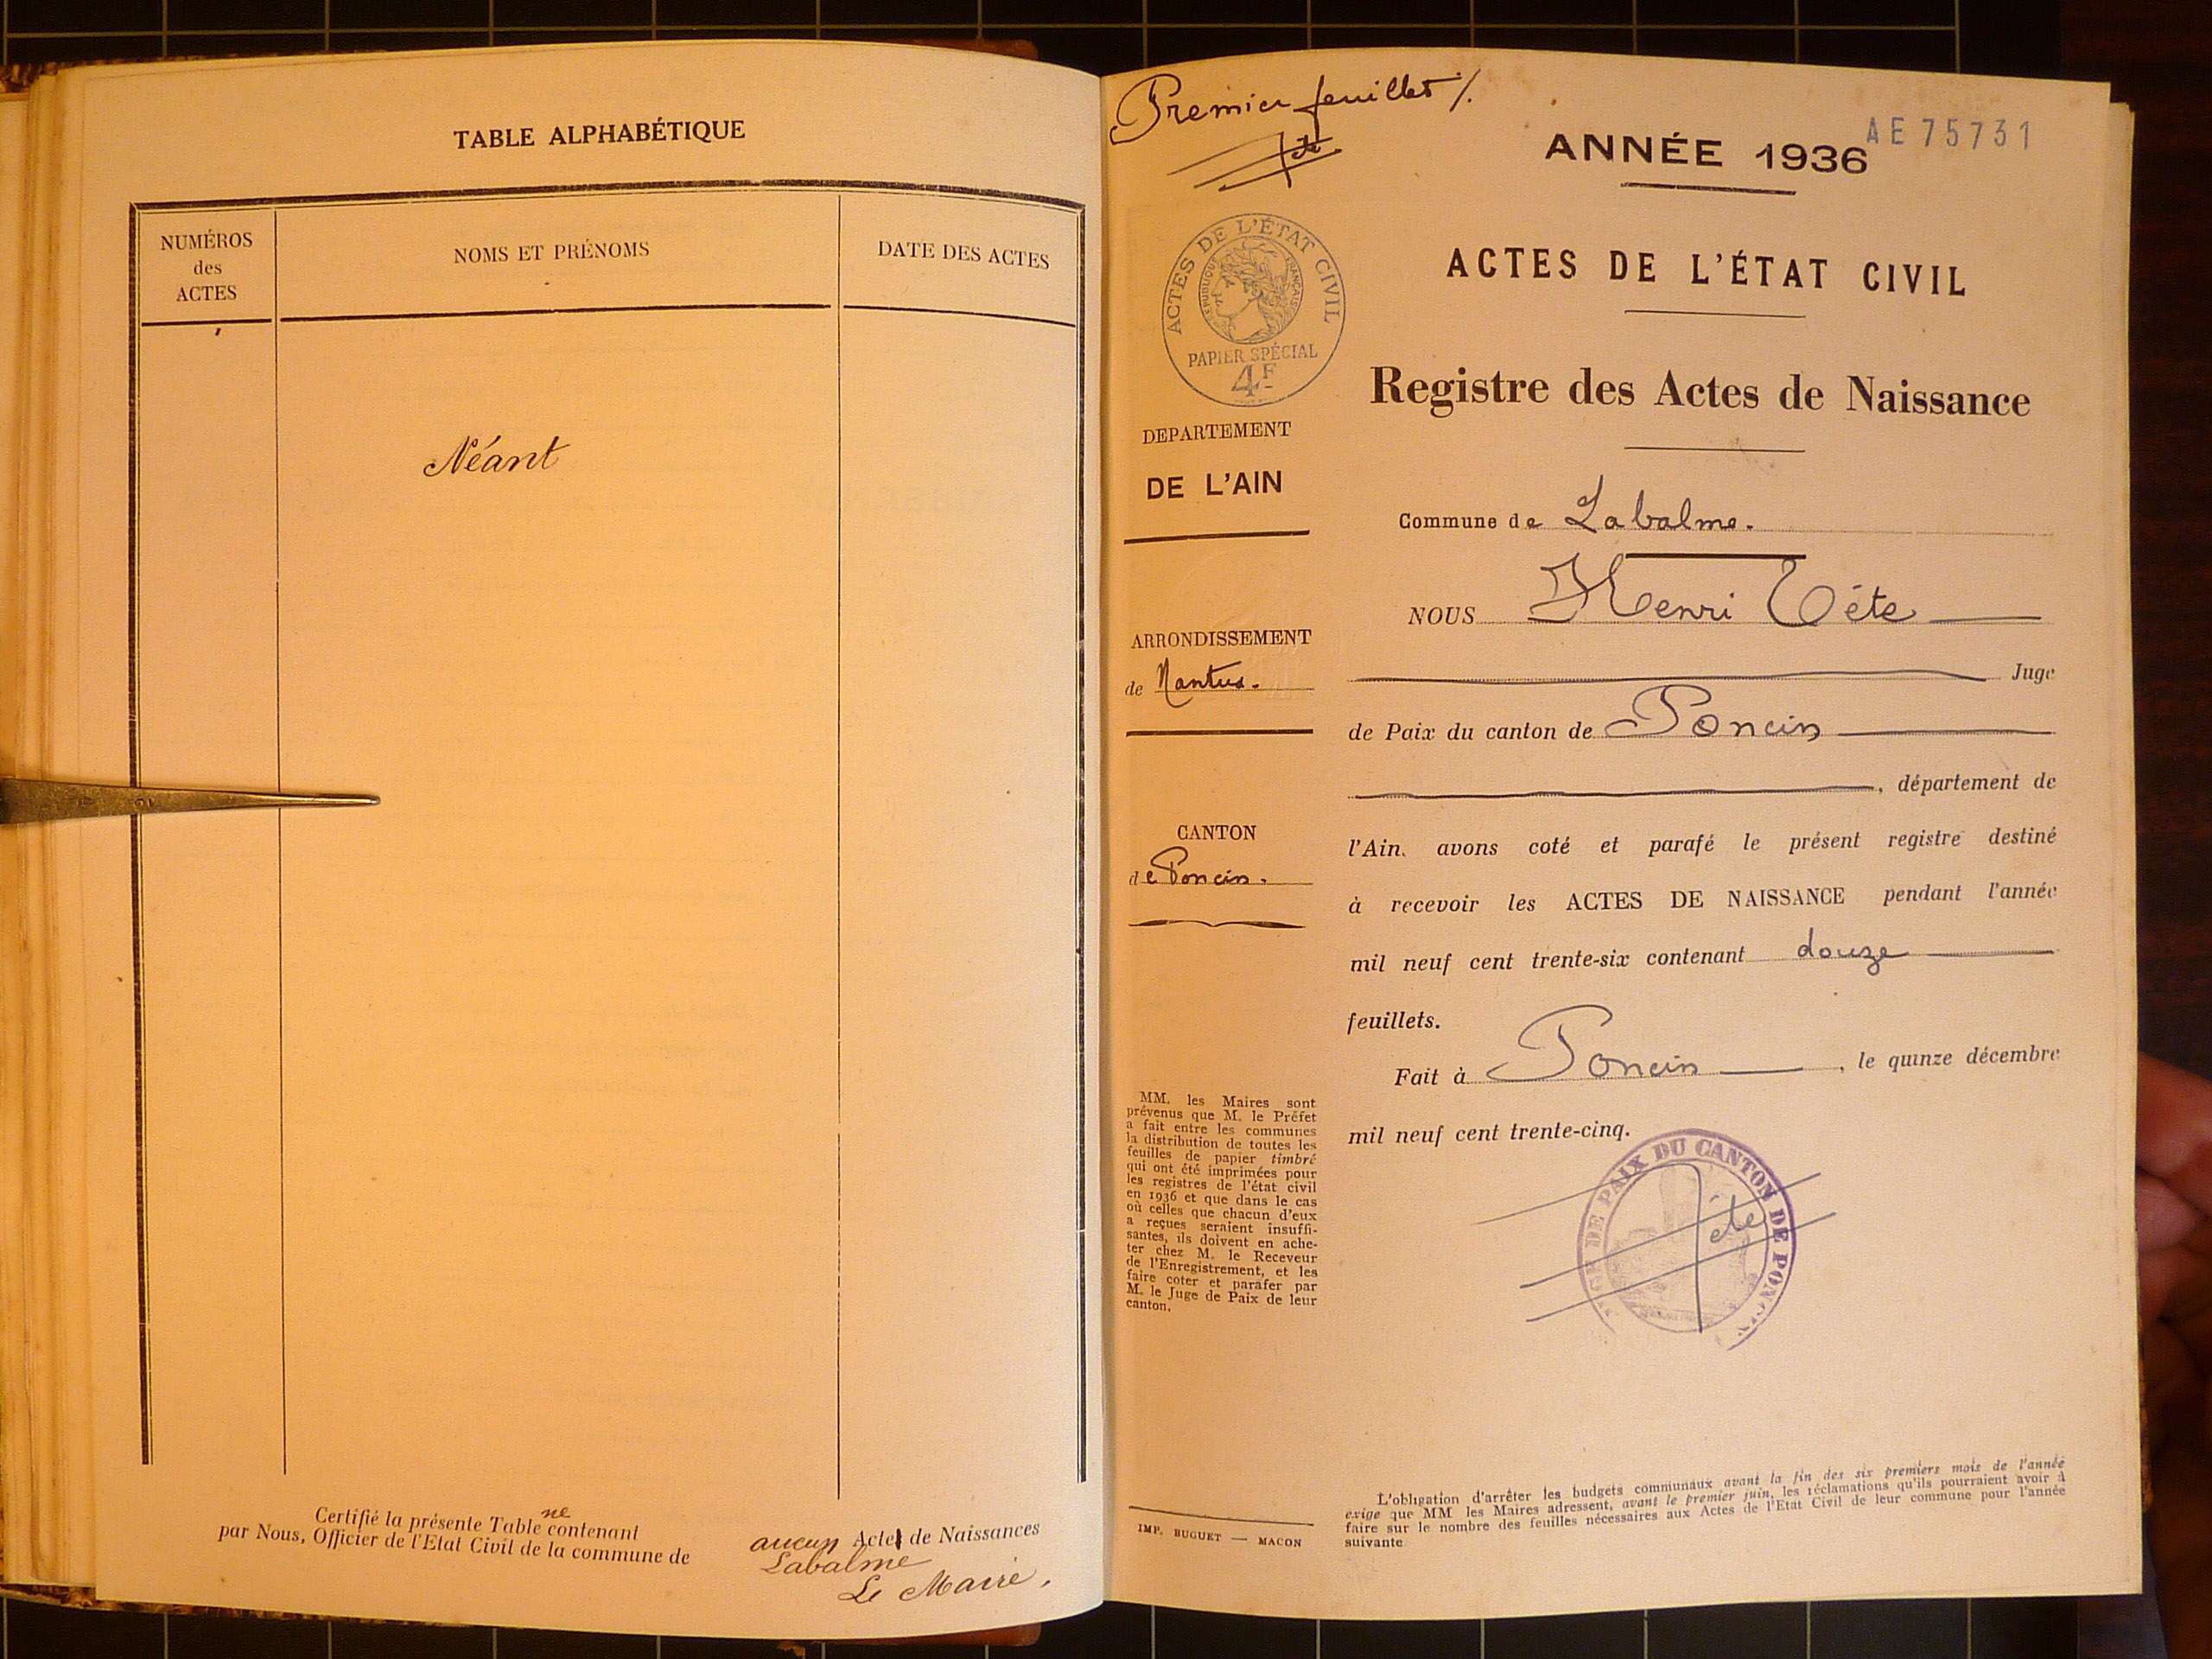 TABLE ALPHABÉTIQUE
NUMÉROS
des
ACTES
NOMS ET PRÉNOMS
DATE DES ACTES
Néant
Certifié la présente Table ne contenant aucun Acte de Naissances
par Nous, Officier de l'Etat Civil de la commune de Labalme
Le Maire,
Premier feuillet /.
Tête
AE 75731
ANNÉE 1936
ACTES DE L'ÉTAT CIVIL
RÉPUBLIQUE FRANÇAISE
PAPIER SPÉCIAL
4F
ACTES DE L'ÉTAT CIVIL
Registre des Actes de Naissance
DEPARTEMENT
DE L'AIN
ARRONDISSEMENT
de Nantua.
CANTON
de Poncin.
MM. les Maires sont
prévenus que M. le Préfet
a fait entre les communes
la distribution de toutes les
feuilles de papier timbré
qui ont été imprimées pour
les registres de l'état civil
en 1936 et que dans le cas
où celles que chacun d'eux
a reçues seraient insuffi-
santes, ils doivent en ache-
ter chez M. le Receveur
de l'Enregistrement, et les
faire coter et parafer par
M. le Juge de Paix de leur
canton.
IMP. BUGUET — MACON
Commune de Labalme.
NOUS Henri Tête
Juge
de Paix du canton de Poncin
, département de
l'Ain, avons coté et parafé le présent registre destiné
à recevoir les ACTES DE NAISSANCE pendant l'année
mil neuf cent trente-six contenant douze
feuillets.
Fait à Poncin, le quinze décembre
mil neuf cent trente-cinq.
JUGE DE PAIX DU CANTON DE PONCIN
Tête
L'obligation d'arrêter les budgets communaux avant la fin des six premiers mois de l'année
exige que MM les Maires adressent, avant le premier juin, les réclamations qu'ils pourraient avoir à
faire sur le nombre des feuilles nécessaires aux Actes de l'Etat Civil de leur commune pour l'année
suivante